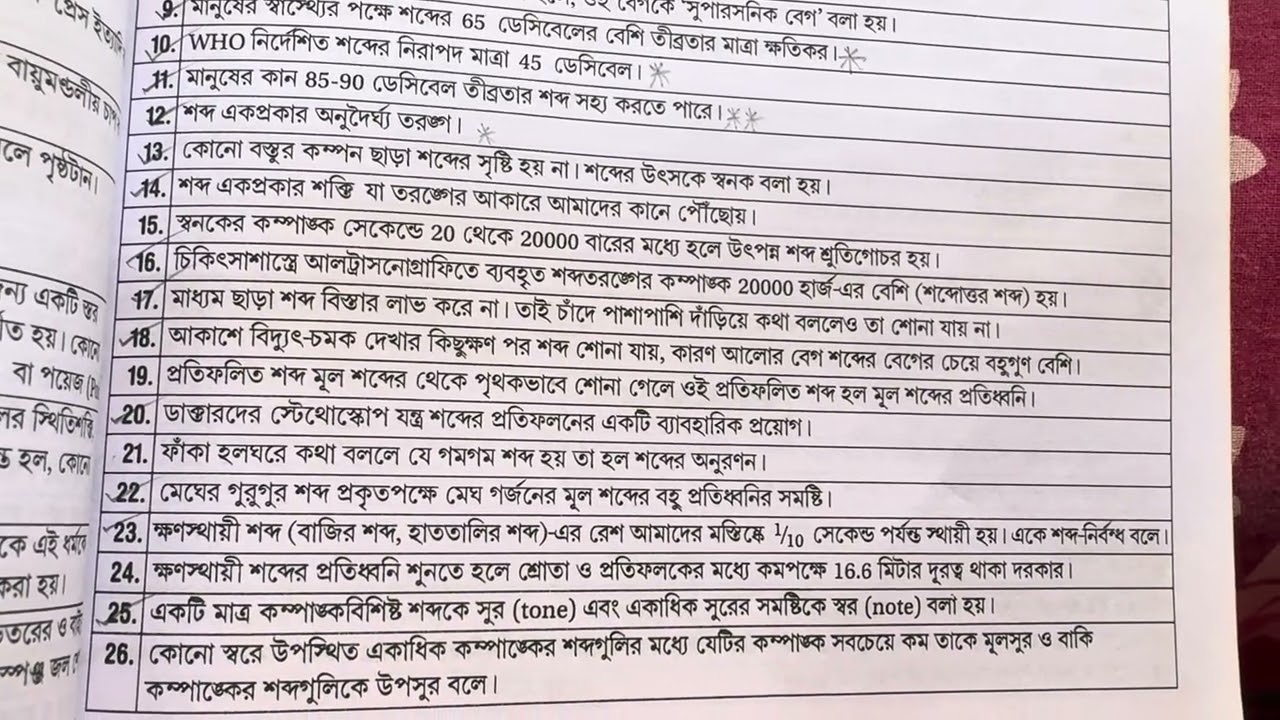 প্রেস ইত্যাদি
বায়ুমণ্ডলীয় চাপ
লে পৃষ্ঠটান।
ন্য একটি স্তর
হয়। কোনো
বা পয়েজ
স্থিতিস্থা
হল, কোনো
কে এই ধর্মকে
করা হয়।
9. মানুষের স্বাস্থ্যের পক্ষে শব্দের 65 ডেসিবেলের বেশি তীব্রতার মাত্রা ক্ষতিকর।
বেগকে 'সুপারসনিক বেগ' বলা হয়।
10. WHO নির্দেশিত শব্দের নিরাপদ মাত্রা 45 ডেসিবেল।
11. মানুষের কান 85-90 ডেসিবেল তীব্রতার শব্দ সহ্য করতে পারে।
12. শব্দ একপ্রকার অনুদৈর্ঘ্য তরঙ্গ।
13. কোনো বস্তুর কম্পন ছাড়া শব্দের সৃষ্টি হয় না। শব্দের উৎসকে স্বনক বলা হয়।
14. শব্দ একপ্রকার শক্তি যা তরঙ্গের আকারে আমাদের কানে পৌঁছোয়।
15. স্বনকের কম্পাঙ্ক সেকেন্ডে 20 থেকে 20000 বারের মধ্যে হলে উৎপন্ন শব্দ শ্রুতিগোচর হয়।
16. চিকিৎসাশাস্ত্রে আলট্রাসনোগ্রাফিতে ব্যবহৃত শব্দতরঙ্গের কম্পাঙ্ক 20000 হার্জ-এর বেশি (শব্দোত্তর শব্দ) হয়।
17. মাধ্যম ছাড়া শব্দ বিস্তার লাভ করে না। তাই চাঁদে পাশাপাশি দাঁড়িয়ে কথা বললেও তা শোনা যায় না।
18. আকাশে বিদ্যুৎ-চমক দেখার কিছুক্ষণ পর শব্দ শোনা যায়, কারণ আলোর বেগ শব্দের বেগের চেয়ে বহুগুণ বেশি।
19. প্রতিফলিত শব্দ মূল শব্দের থেকে পৃথকভাবে শোনা গেলে ওই প্রতিফলিত শব্দ হল মূল শব্দের প্রতিধ্বনি।
20. ডাক্তারদের স্টেথোস্কোপ যন্ত্র শব্দের প্রতিফলনের একটি ব্যাবহারিক প্রয়োগ।
21. ফাঁকা হলঘরে কথা বললে যে গমগম শব্দ হয় তা হল শব্দের অনুরণন।
22. মেঘের গুরুগুর শব্দ প্রকৃতপক্ষে মেঘ গর্জনের মূল শব্দের বহু প্রতিধ্বনির সমষ্টি।
23. ক্ষণস্থায়ী শব্দ (বাজির শব্দ, হাততালির শব্দ)-এর রেশ আমাদের মস্তিষ্কে 1/10 সেকেন্ড পর্যন্ত স্থায়ী হয়। একে শব্দ-নির্বন্ধ বলে।
24. ক্ষণস্থায়ী শব্দের প্রতিধ্বনি শুনতে হলে শ্রোতা ও প্রতিফলকের মধ্যে কমপক্ষে 16.6 মিটার দূরত্ব থাকা দরকার।
25. একটি মাত্র কম্পাঙ্কবিশিষ্ট শব্দকে সুর (tone) এবং একাধিক সুরের সমষ্টিকে স্বর (note) বলা হয়।
26. কোনো স্বরে উপস্থিত একাধিক কম্পাঙ্কের শব্দগুলির মধ্যে যেটির কম্পাঙ্ক সবচেয়ে কম তাকে মূলসুর ও বাকি
কম্পাঙ্কের শব্দগুলিকে উপসুর বলে।